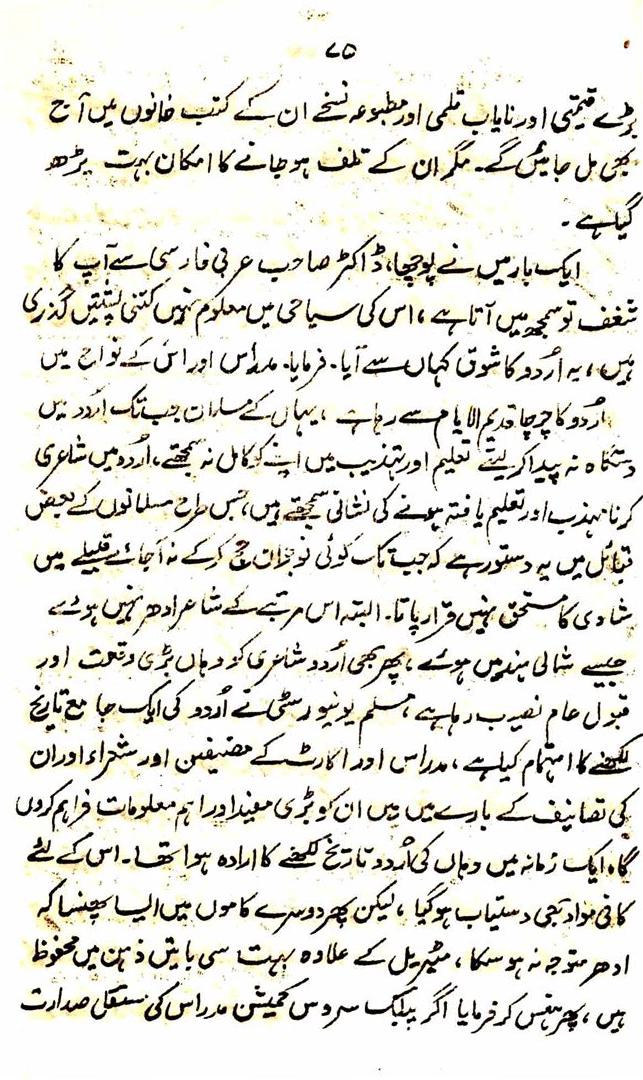 ۷۵
بڑے قیمتی اور نایاب قلمی اور مطبوعہ نسخے ان کے کتب خانوں میں آج
بھی مل جائیں گے۔ مگر ان کے تلف ہو جانے کا امکان بہت بڑھ
گیا ہے ۔
ایک بار میں نے پوچھا، ڈاکٹر صاحب عربی فارسی سے آپ کا
شغف تو سمجھ میں آتا ہے ، اس کی سیاحی میں معلوم نہیں کتنی پشتیں گذری
ہیں ، یہ اُردو کا شوق کہاں سے آیا۔ فرمایا۔ مدراس اور اس کے نواح میں
اُردو کا چرچا قدیم الایام سے رہا ہے ، یہاں کے مسلمان جب تک اُردو میں
دستگاہ نہ پیدا کر لیتے تعلیم اور تہذیب میں اپنے کو کامل نہ سمجھتے ، اُردو میں شاعری
کرنا مہذب اور تعلیم یافتہ ہونے کی نشانی سمجھتے ہیں ، جس طرح مسلمانوں کے بعض
قبائل میں یہ دستور ہے کہ جب تک کوئی نوجوان حج کر کے نہ آ جائے قبیلے میں
شادی کا مستحق نہیں قرار پاتا۔ البتہ اس مرتبے کے شاعر ادھر نہیں ہوئے
جیسے شمالی ہند میں ہوئے ، پھر بھی اُردو شاعری کو وہاں بڑی وقعت اور
قبول عام نصیب رہا ہے ، مسلم یونیورسٹی نے اُردو کی ایک جامع تاریخ
لکھنے کا اہتمام کیا ہے ، مدراس اور ارکاٹ کے مصنیفین اور شعراء اور ان
کی تصانیف کے بارے میں میں ان کو بڑی مفید اور اہم معلومات فراہم کروں
گا، ایک زمانہ میں وہاں کی اُردو تاریخ لکھنے کا ارادہ ہوا تھا۔ اس کے لئے
کافی مواد بھی دستیاب ہو گیا ، لیکن پھر دوسرے کاموں میں ایسا پھنسا کہ
ادھر متوجہ نہ ہو سکا ، مٹیریل کے علاوہ بہت سی باتیں ذہن میں محفوظ
ہیں ، پھر ہنس کر فرمایا اگر پبلک سروس کمیشن مدراس کی مستقل صدارت